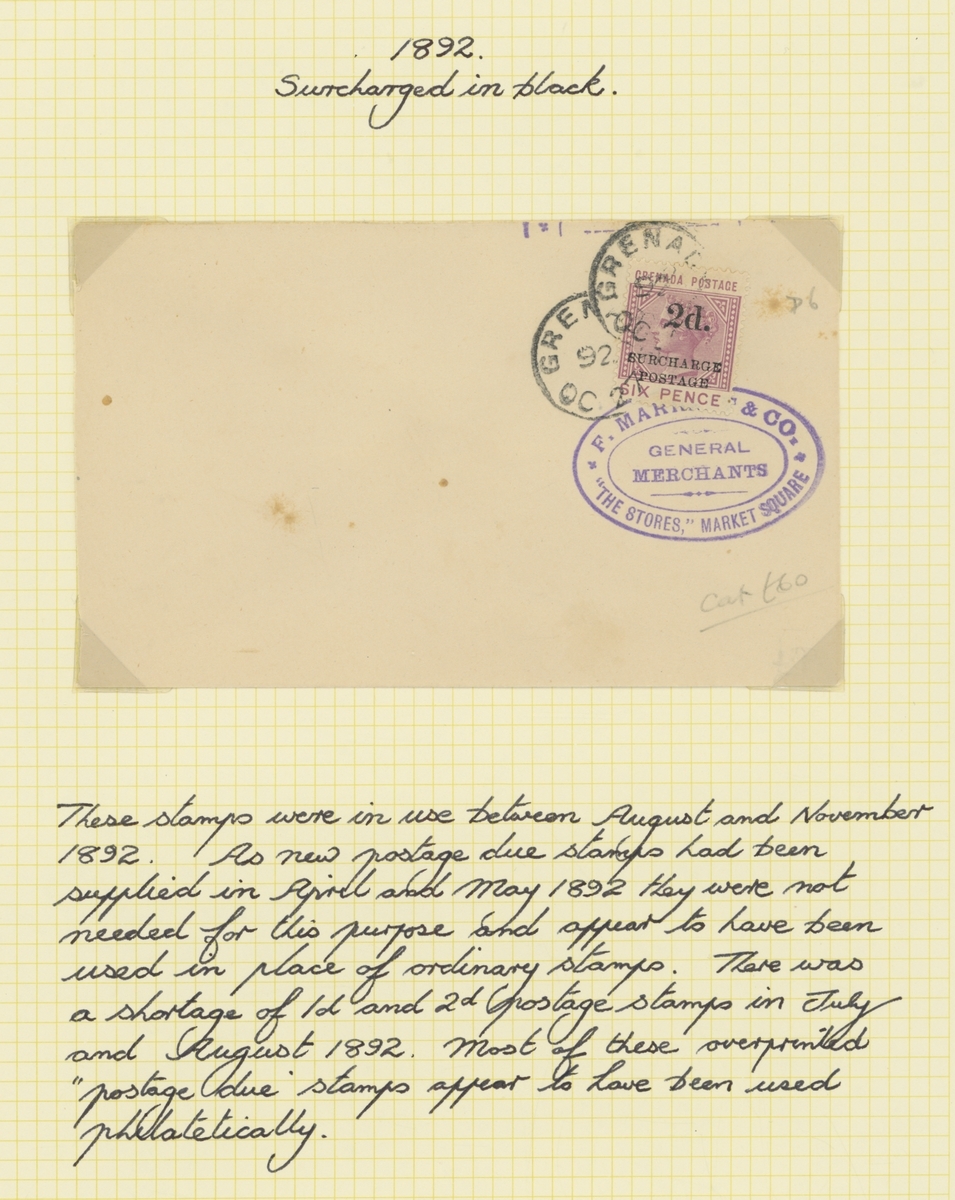 1892.
Surcharged in black.
GRENAD
92
OC
GREN
92.
OC 2
GRENADA POSTAGE
2d.
SURCHARGE
POSTAGE
SIX PENCE
F. & CO.
GENERAL
MERCHANTS
"THE STORES," MARKET SQUARE
D6
Cat £60
These stamps were in use between August and November
1892. As new postage due stamps had been
supplied in April and May 1892 they were not
needed for this purpose and appear to have been
used in place of ordinary stamps. There was
a shortage of 1d and 2d postage stamps in July
and August 1892. Most of these overprinted
"postage due" stamps appear to have been used
philatetically.